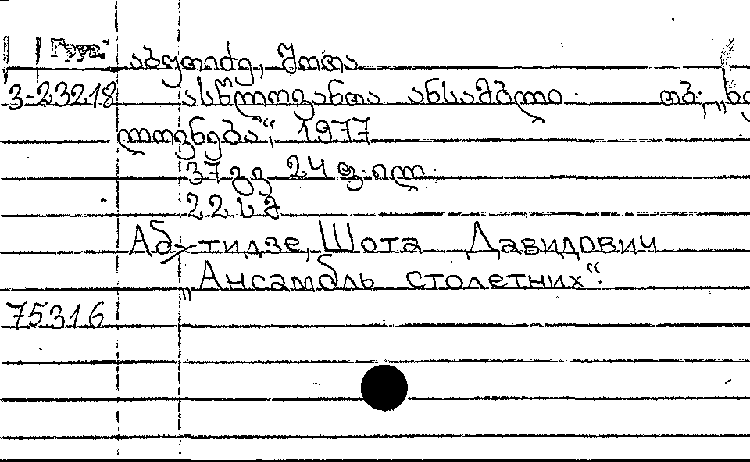 Груз.
აბეთიძე, შოთა
3-23218 ასწლოვანთა ანსამბლი. თბ., „ხე
ლოვნება“, 1977
37 გვ. 24 ფ. ილ.
22 სმ
Абетидзе, Шота Давидович
„Ансамбль столетних“.
75316